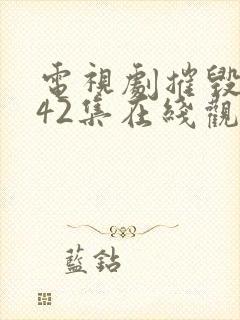 電視劇摧毀
42集在綫觀
藍鉆